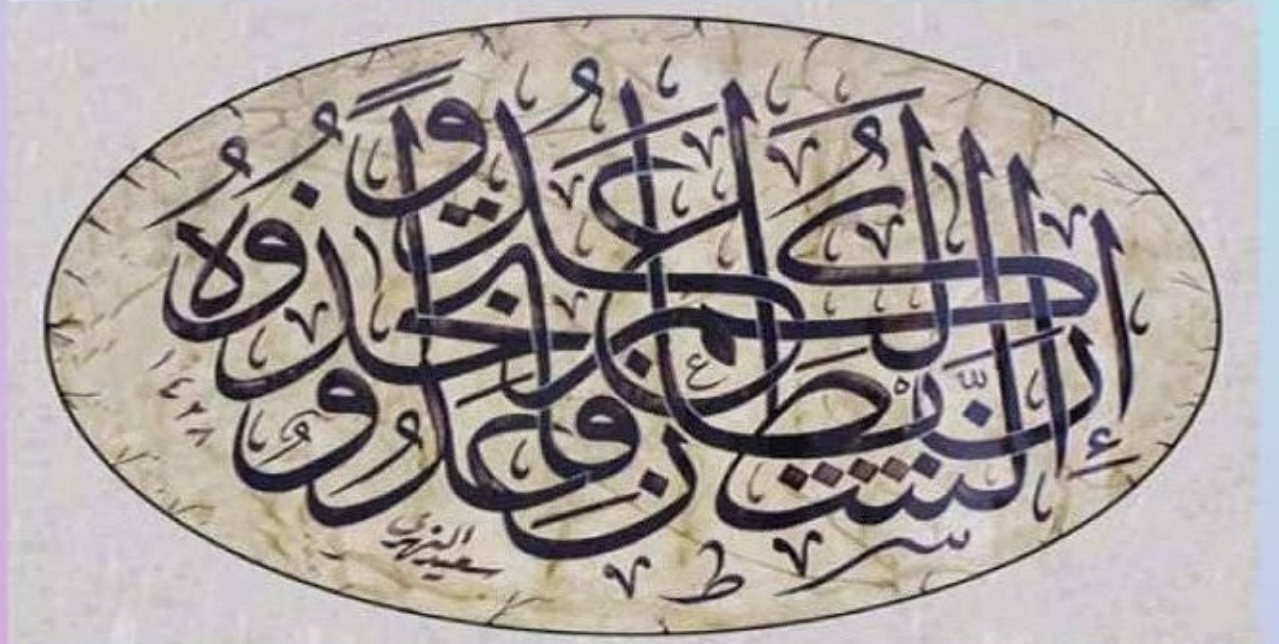 إن الشيطان لكم عدو فاتخذوه عدوا
سعيد النهري
١٤٢٨